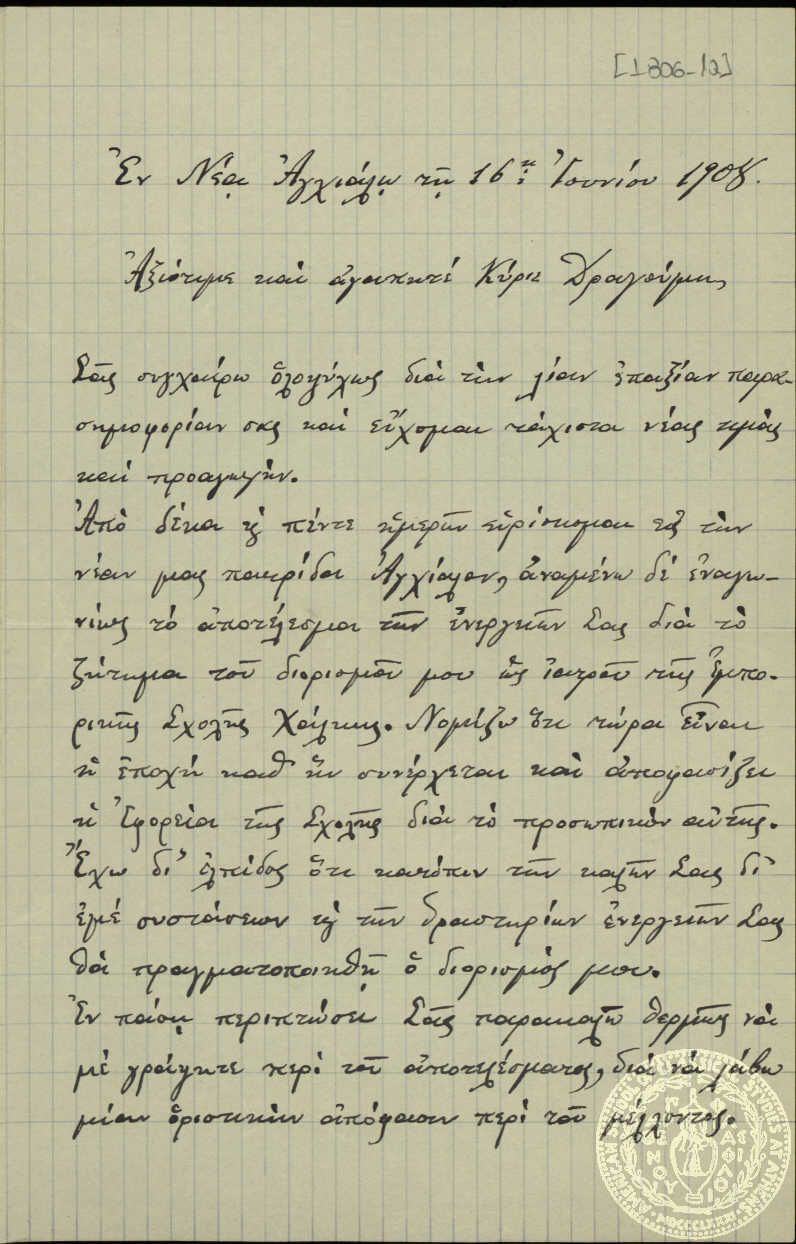 [1806-12]
Ἐν Νέᾳ Ἀγχιάλῳ τῇ 16ῃ Ἰουνίου 1908.
Ἀξιότιμε καὶ ἀγαπητέ Κύριε Δραγούμη,
Σᾶς συγχαίρω ὁλοψύχως διὰ τὴν λίαν ἐπαξίαν παρα-
σημοφορίαν σας καὶ εὔχομαι τάχιστα νέας τιμὰς
καὶ προαγωγὴν.
Ἀπὸ δέκα κ πέντε ἡμερῶν εὑρίσκομαι εἰς τὴν
νέαν μας πατρίδα Ἀγχίαλον, ἀναμένω δὲ ἐναγω-
νίως τὸ ἀποτέλεσμα τῶν ἐνεργειῶν Σας διὰ τὸ
ζήτημα τοῦ διορισμοῦ μου ὡς ἰατροῦ τῆς Ἐμπο-
ρικῆς Σχολῆς Χάλκης. Νομίζω ὅτι τώρα εἶναι
ἡ ἐποχή καθ' ἣν συνέρχεται καὶ ἀποφασίζει
ἡ Ἐφορεία τῆς Σχολῆς διὰ τὸ προσωπικὸν αὐτῆς.
Ἔχω δι' ἐλπίδος ὅτι κατόπιν τῶν καλῶν Σας δι'
ἐμέ συστάσεων κ τῶν δραστηρίων ἐνεργειῶν Σας
θὰ πραγματοποιηθῇ ὁ διορισμός μου.
Ἐν πάσῃ περιπτώσει Σᾶς παρακαλῶ θερμῶς νὰ
μὲ γράψητε περὶ τοῦ ἀποτελέσματος, διὰ νὰ λάβω
μίαν ὁριστικὴν ἀπόφασιν περὶ τοῦ μέλλοντος.